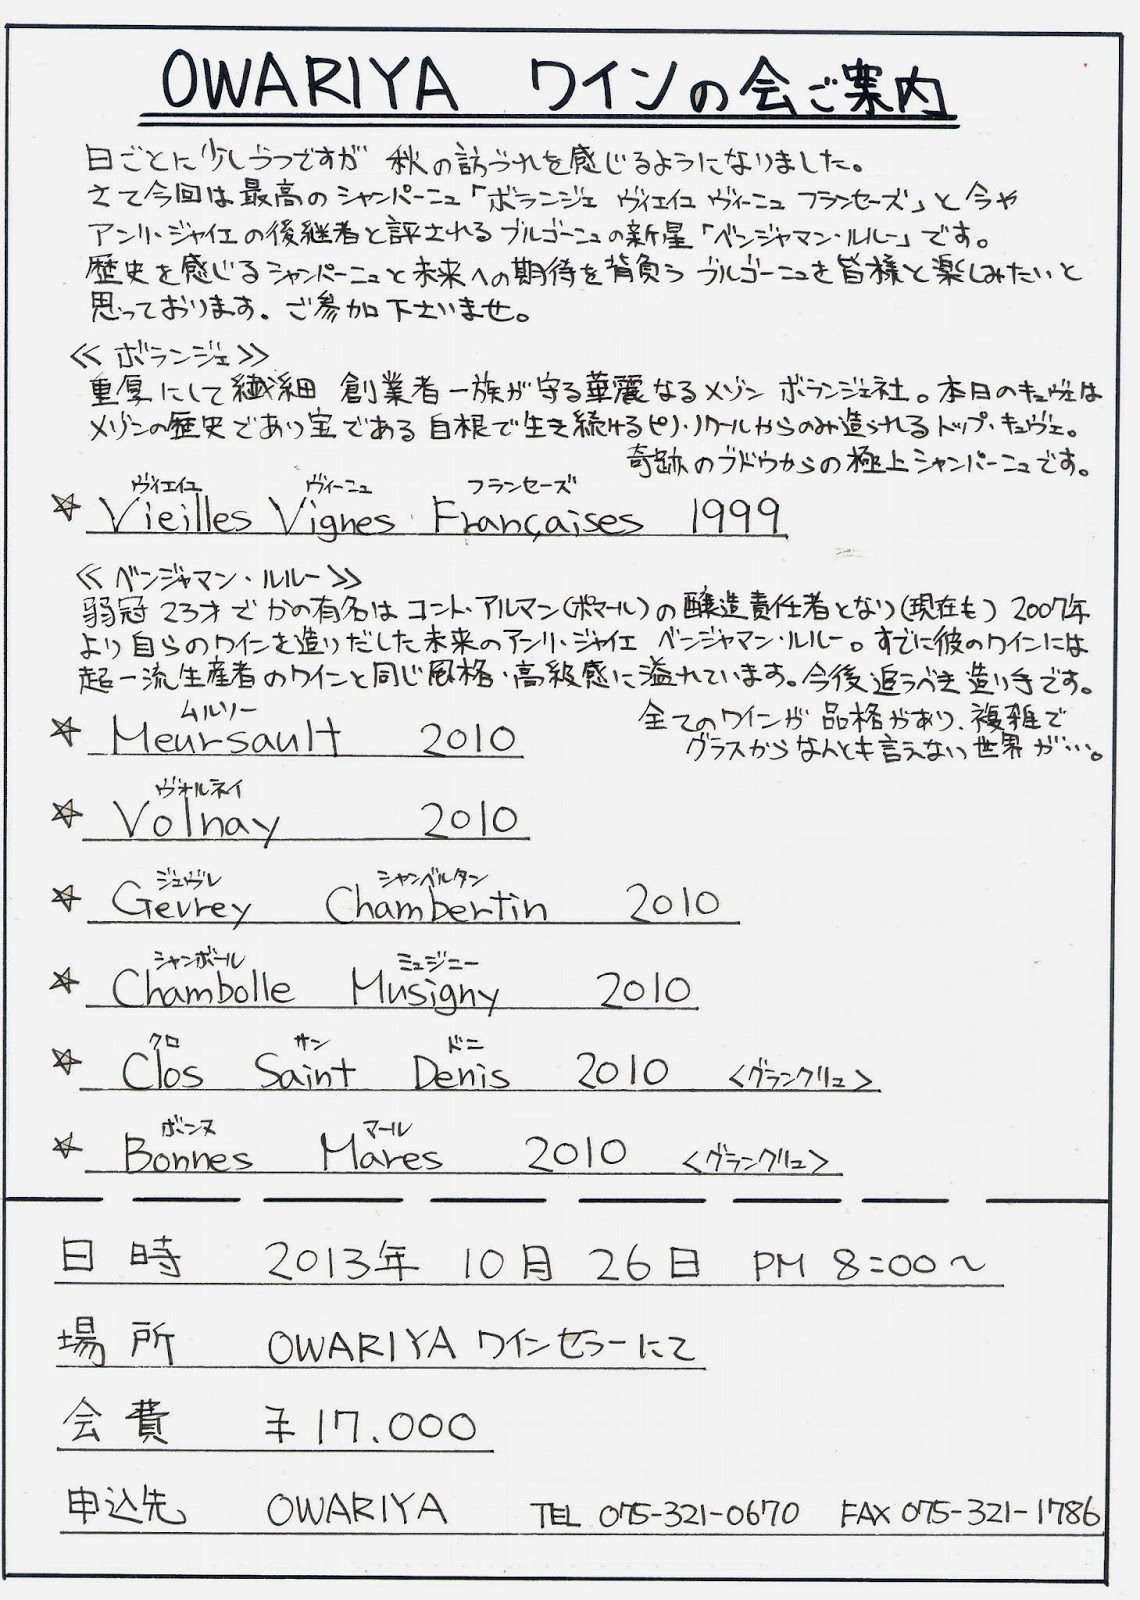 OWARIYA ワインの会ご案内
日ごとに少しづつですが 秋の訪づれを感じるようになりました。
さて今回は最高のシャンパーニュ「ボランジェ ヴィエイユ ヴィーニュ フランセーズ」と今や
アンリ・ジャイエの後継者と評されるブルゴーニュの新星「ベンジャマン・ルルー」です。
歴史を感じるシャンパーニュと未来への期待を背負う ブルゴーニュを皆様と楽しみたいと
思っております。ご参加下さいませ。
≪ボランジェ≫
重厚にして繊細 創業者一族が守る華麗なるメゾン ボランジェ社。本日のキュヴェは
メゾンの歴史であり宝である自根で生き続けるピノ・ノワールからのみ造られるトップ・キュヴェ。
奇跡のブドウからの極上シャンパーニュです。
ヴィエイユ ヴィーニュ フランセーズ
☆ Vieilles Vignes Françaises 1999
≪ベンジャマン・ルルー≫
弱冠23才でかの有名はコント・アルマン(ポマール)の醸造責任者となり(現在も) 2007年
より自らのワインを造りだした未来のアンリ・ジャイエ ベンジャマン・ルルー。すでに彼のワインには
超一流生産者のワインと同じ風格・高級感に溢れています。今後追うべき造り手です。
全てのワインが品格があり、複雑で
グラスからなんとも言えない世界が…。
ムルソー
☆ Meursault 2010
ヴォルネイ
☆ Volnay 2010
ジュヴレ シャンベルタン
☆ Gevrey Chambertin 2010
シャンボール ミュジニー
☆ Chambolle Musigny 2010
クロ サン ドニ
☆ Clos Saint Denis 2010 <グランクリュ>
ボンヌ マール
☆ Bonnes Mares 2010 <グランクリュ>
日時 2013年 10月 26日 PM 8:00〜
場所 OWARIYA ワインセラーにて
会費 ¥17.000
申込先 OWARIYA TEL 075-321-0670 FAX 075-321-1786